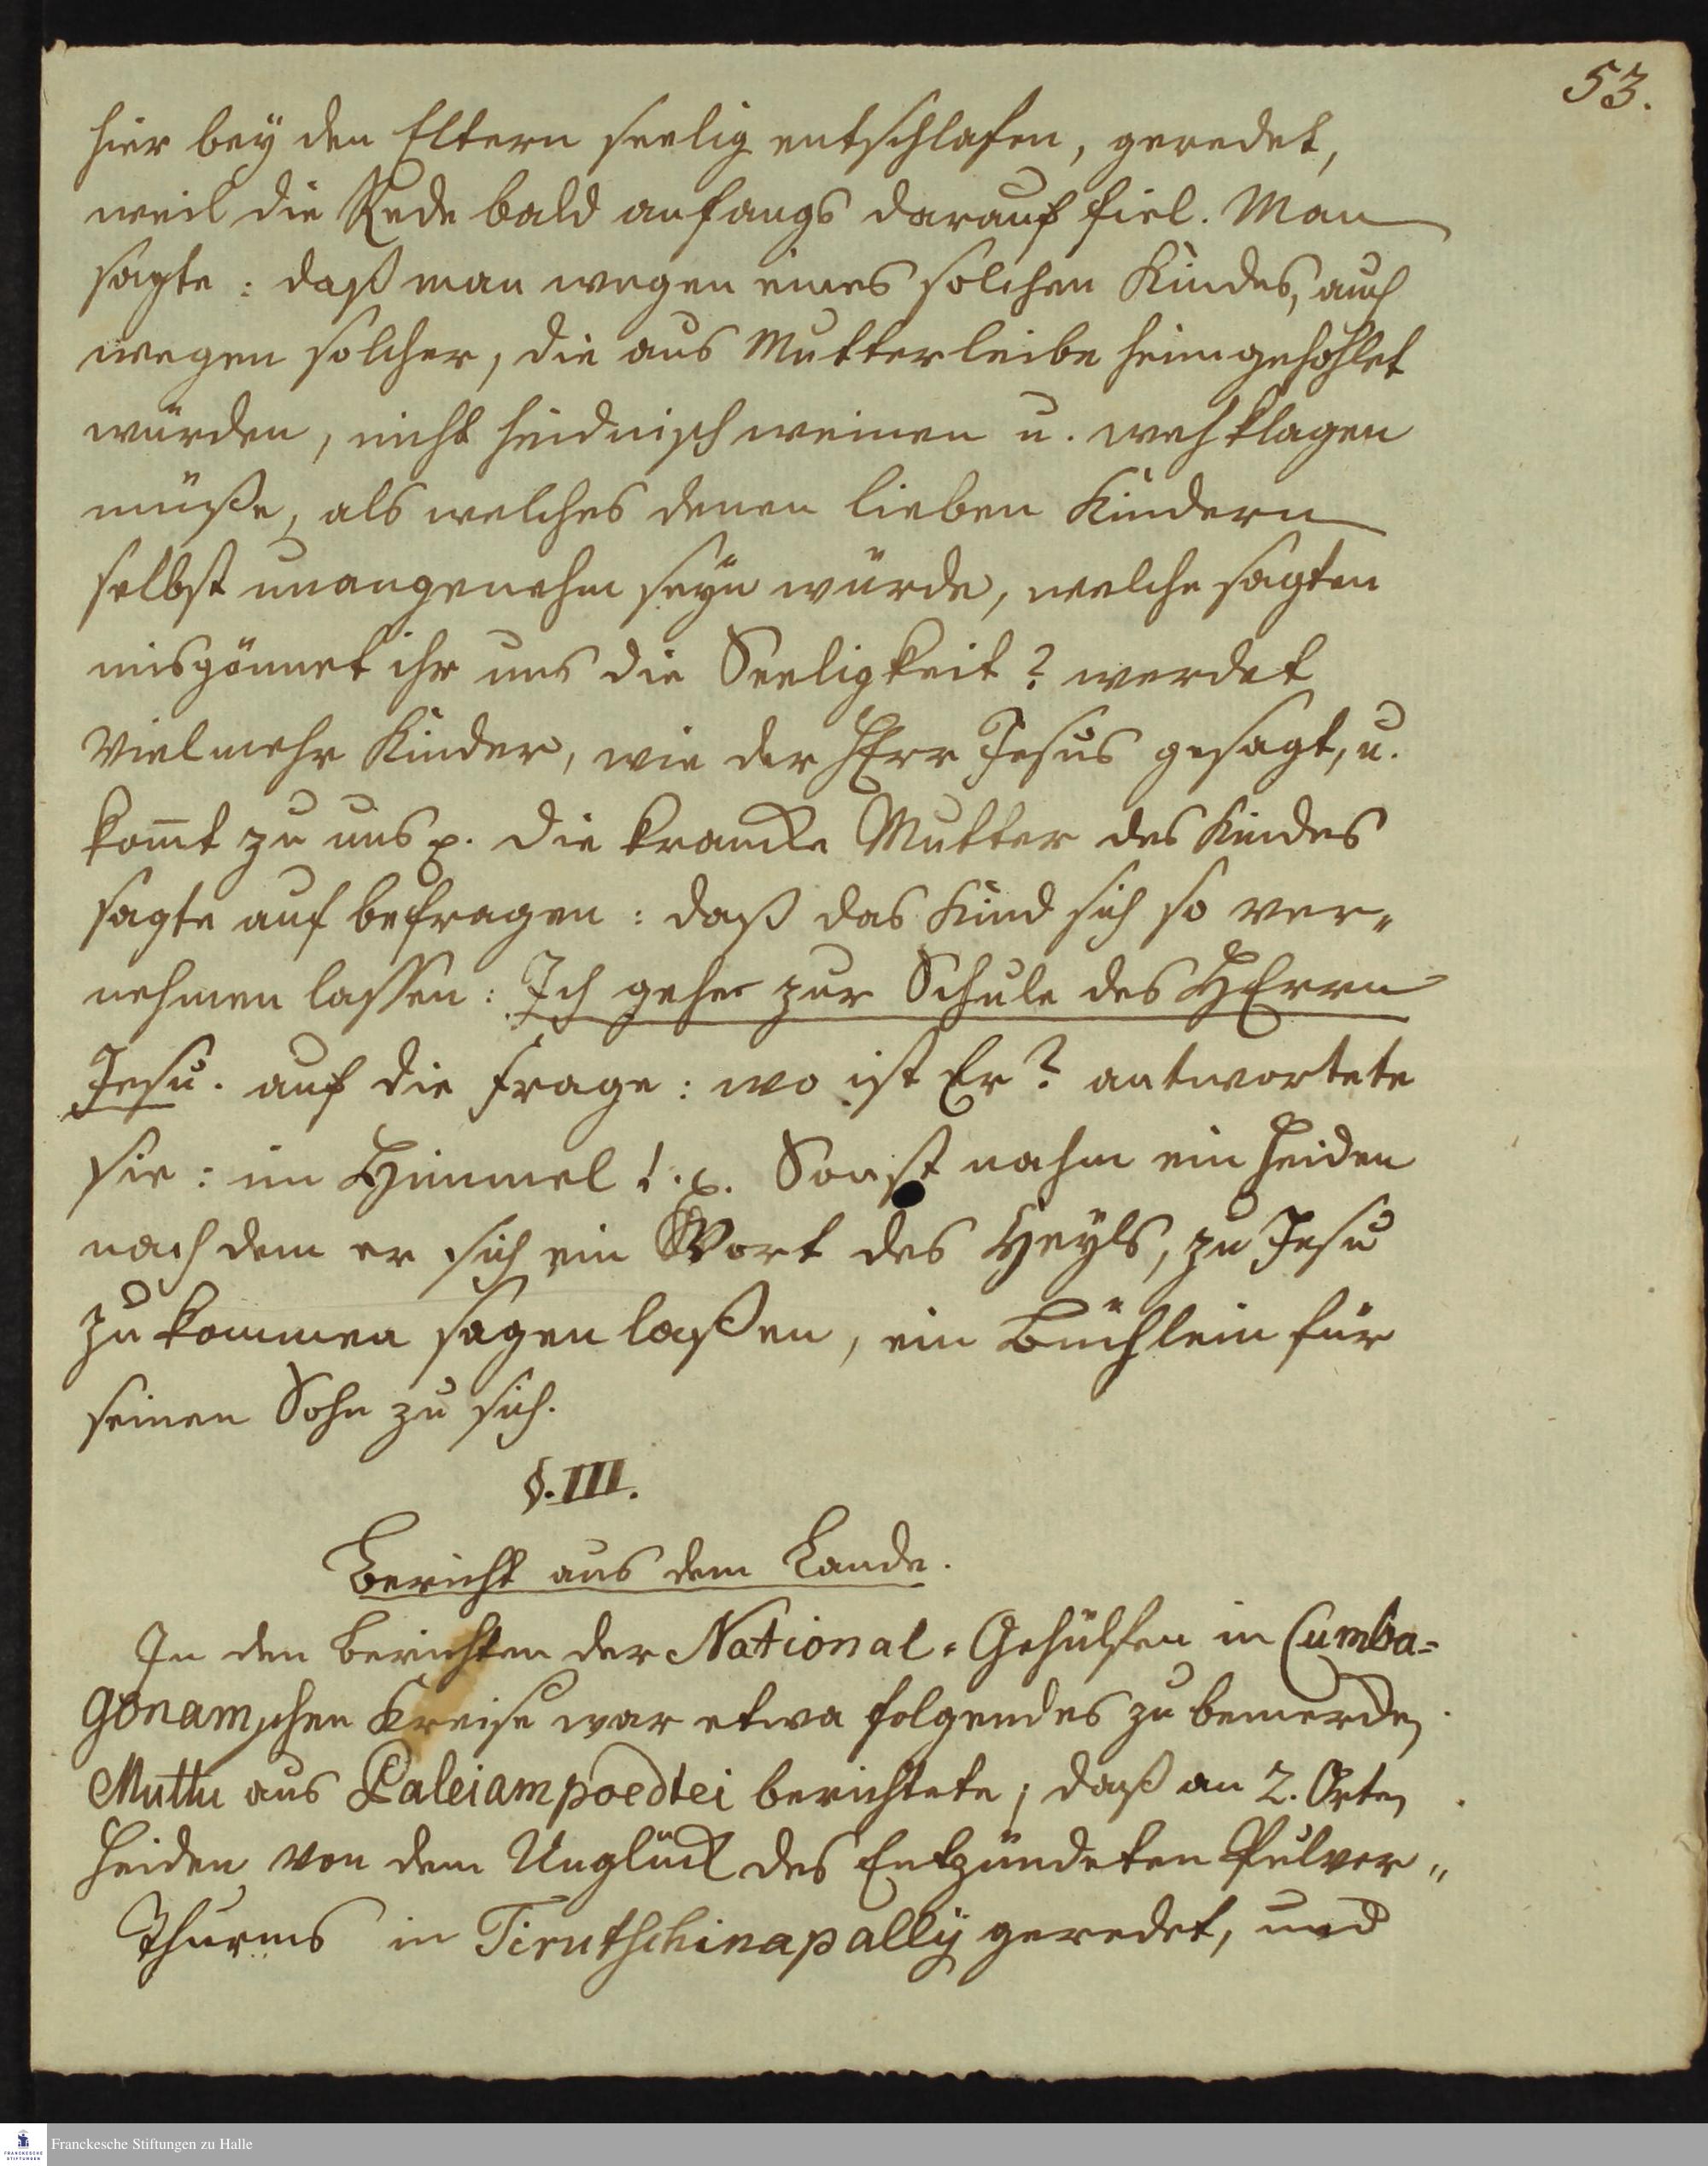 53.
hier bey den Eltern seelig entschlafen, geredet,
weil die Rede bald anfangs darauf fiel. Man
sagte: daß man wegen eines solchen Kindes, auch
wegen solcher, die aus Mutterleibe heimgehohlet
würden, nicht heidnisch weinen u. wehklagen
müße, als welches denen lieben Kindern
selbst unangenehm seyn würde, welche sagten
misgönnet ihr uns die Seeligkeit? werdet
vielmehr Kinder, wie der HErr Jesus gesagt, u.
kom̄t zu uns p. die krancke Mutter des Kindes
sagte auf befragen: daß das Kind sich so ver„
nehmen lassen: Ich gehe zur Schule des HErrn
Jesu. auf die Frage: wo ist Er? antwortete
sie: im Himmel!.p. Sonst nahm ein Heiden
nach dem er sich ein Wort des Heyls, zu Jesu
zu kommen sagen laßen, ein Büchlein für
seinen Sohn zu sich.
§. III.
Bericht aus dem Lande.
In den Berichten der National-Gehülfen in Cumba=
gonamschen Kreise war etwa folgendes zu bemercken
Muttu aus Paleiampoedtei berichtete, daß an 2. Orten
Heiden von dem Unglück des Entzündeten Pulver„
Thurms in Tirutschinapally geredet, und
Franckesche Stiftungen zu Halle
FRANCKESCHE
STIFTUNGEN